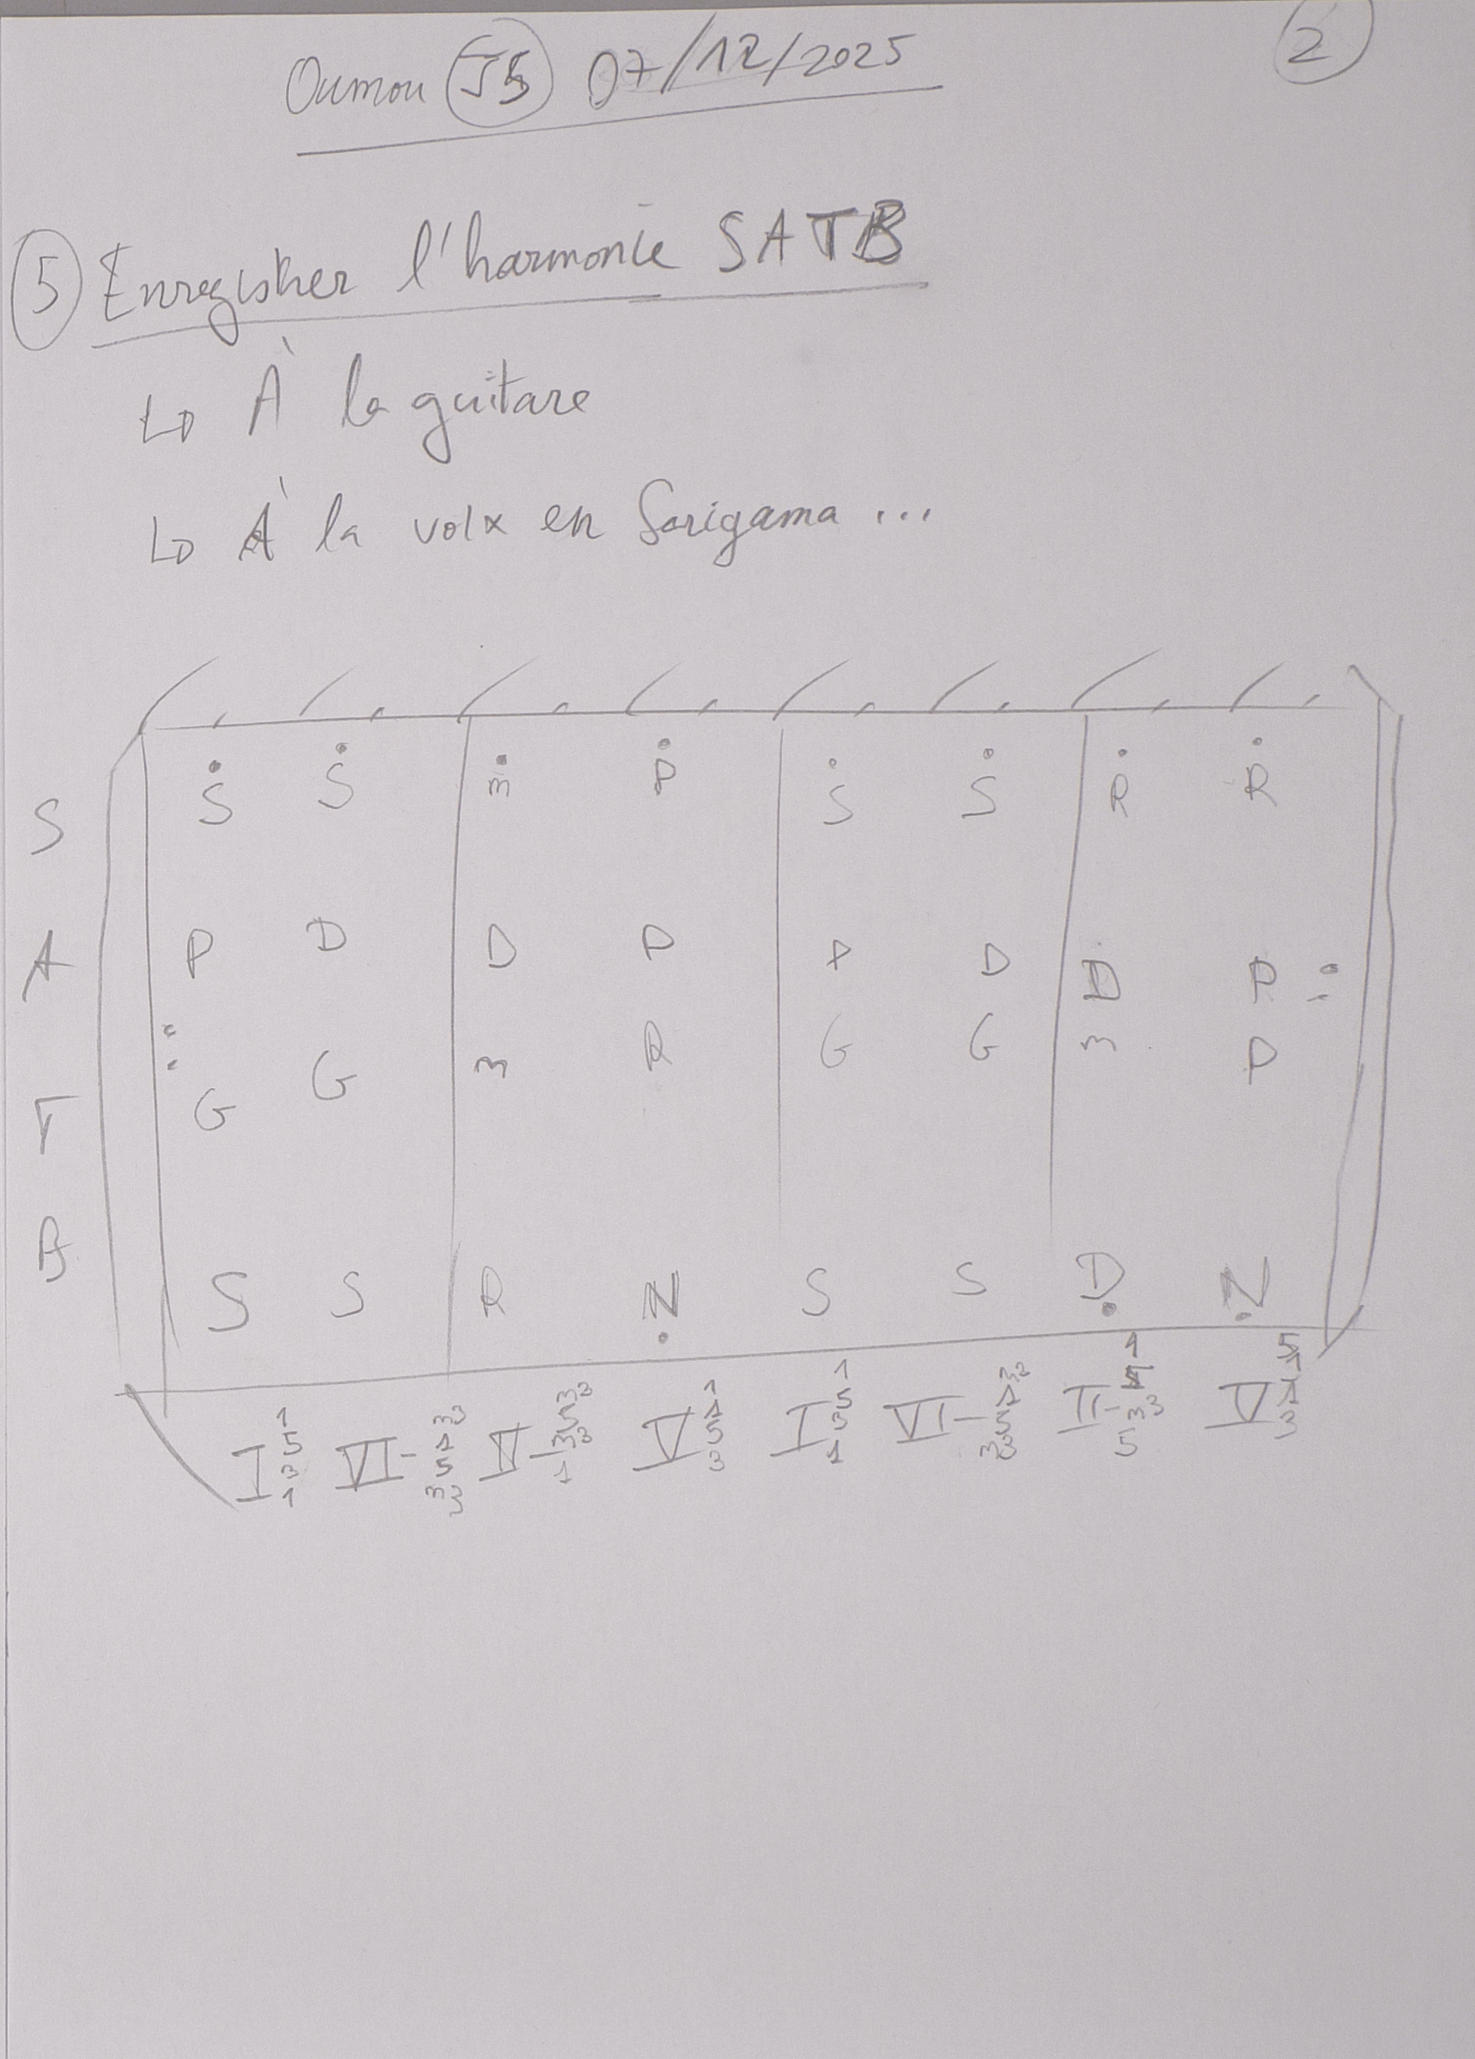 Oumou J5 07/12/2025
2
5 Enregistrer l'harmonie SATB
À la guitare
À la voix en Sarigama ...
S Ṡ Ṡ ṁ Ṗ Ṡ Ṡ Ṙ Ṙ
A P D D P P D D P :
T : G G m R G G m P
B S S R Ṇ S S Ḍ Ṇ
I VI- II- V I VI- II- V